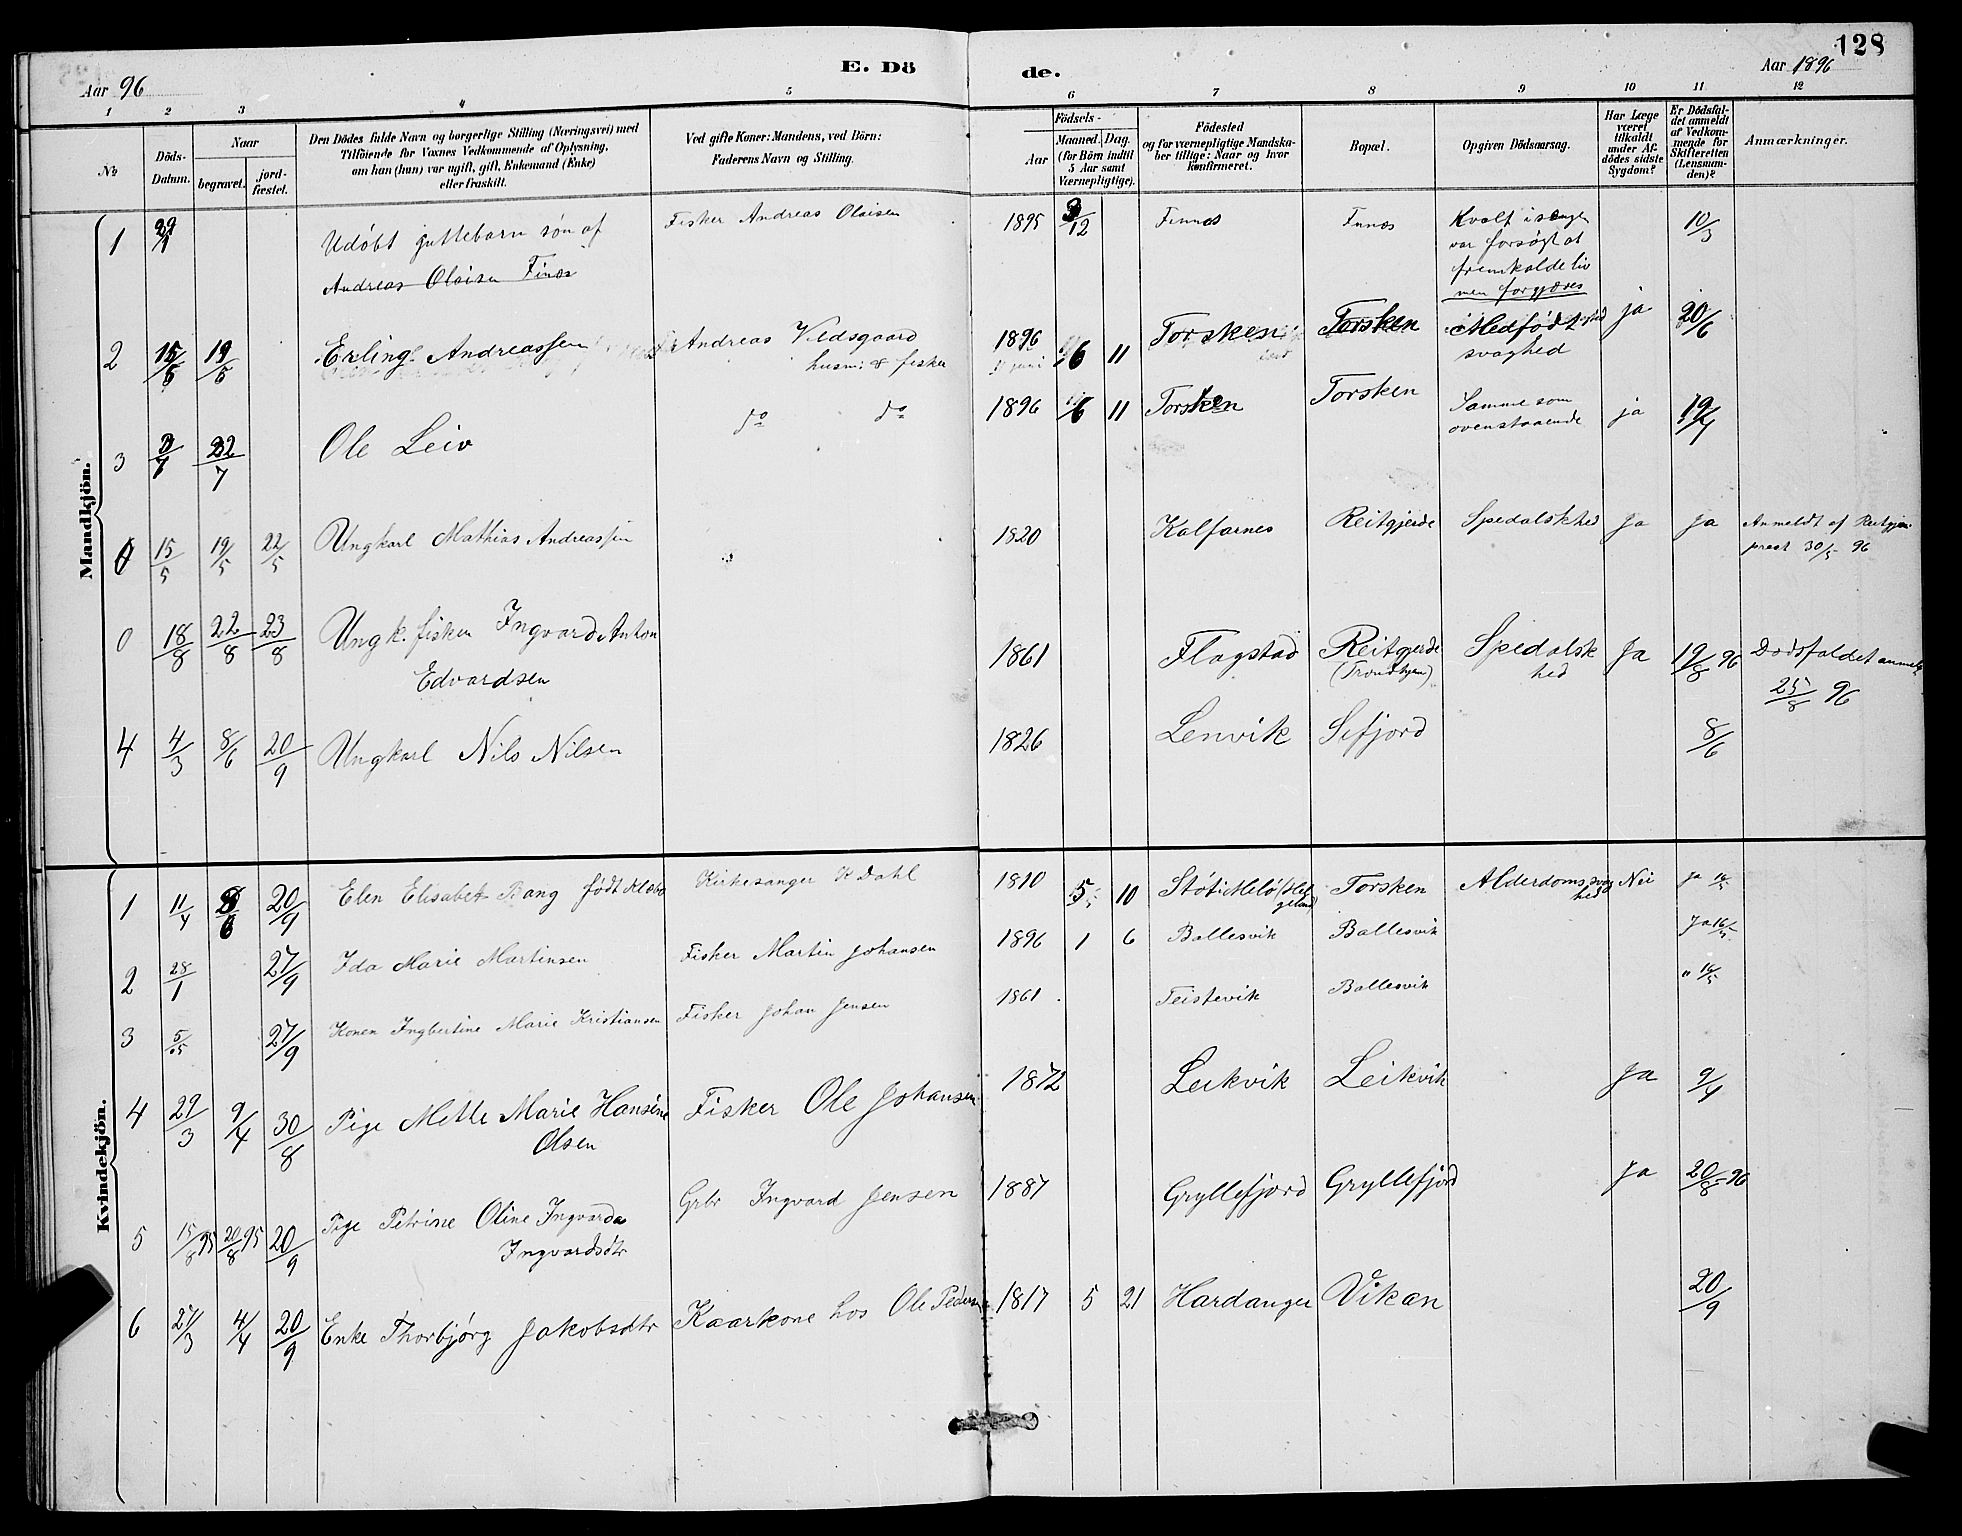 128
E. Döde.
Aar 96
Aar 1896
1 2 3 4 5 6 7 8 9 10 11 12
No
Döds-Datum.
Naar
begravet.
jord-fæstet.
Den Dödes fulde Navn og borgerlige Stilling (Næringsvei) med
Tilföiende for Voxnes Vedkommende af Oplysning,
om han (hun) var ugift, gift, Enkemand (Enke)
eller fraskilt.
Ved gifte Koner: Mandens, ved Börn:
Faderens Navn og Stilling.
Födsels-
Aar
Maaned. Dag.
(for Börn indtil
5 Aar samt
Værnepligtige).
Födested
og for værnepligtige Mandska-
ber tillige: Naar og hvor
konfirmeret.
Bopæl.
Opgiven Dödsaarsag.
Har Læge
været
tilkaldt
under Af-
dödes sidste
Sygdom?
Er Dödsfal-
det anmeldt
af Vedkom-
mende for
Skifteretten
(Lensman-
den)?
Anmærkninger.
Mandkjön.
1 29/1 Udöbt guttebarn sön af Fisker Andreas Olaisen 1895 3/12 Finnes Finnæs Kvalt i sengen 10/3
Andreas Olaisen Finæs
var forsögt at
fremkalde liv
men forgjæves
2 15/6 19/6 Erling Andreassen Andreas Vedsgaard 1896 6 11 Torsken Torsken Medfødt ja 20/6
husm: & fisker
svaghed
3 3/7 22/7 Ole Leiv do do 1896 6 11 Torsken Torsken Samme som ja 19/7
ovenstaaende
0 15/5 19/5 22/5 Ungkarl Mathias Andreassen 1820 Kalfarnes Reitgjerde Spedalskhed Ja Ja Anmeldt af Reitgjer.
prest 30/5 96
0 18/8 22/8 23/8 Ungk. fisker Ingvard Anton 1861 Flagstad Reitgjerde Spedalsk Ja 19/8 96 Dødsfaldet anmeldt
Edvardsen (Trondhjem) hed 25/8 96
4 4/3 8/6 20/9 Ungkarl Nils Nilsen 1826 Lenvik Sifjord 8/6
Kvindekjön.
1 11/4 8/6 20/9 Elen Elisabet Bang født Klæbo Kirkesanger K Dahl 1810 5 10 Støt i Melö (Hel Torsken Alderdomssvag Nei ja
geland) hed
2 28/1 27/9 Ida Marie Martinsen Fisker Martin Johansen 1896 1 6 Ballesvik Ballesvik Ja 16/5
3 27/9 Konen Ingbertine Marie Kristiansen Fisker Johan Jensen 1861 Teistevik Ballesvik " 16/5
4 29/3 9/4 30/8 Pige Mette Marie Hansine Fisker Ole Johansen 1872 Leikvik Leikvik Ja 9/4
Olsen
5 15/8 95 20/8 95 20/9 Pige Petrine Oline Ingvarda Grbr Ingvard Jensen 1887 Gryllefjord Gryllefjord Ja 20/8 - 96
Ingvardsdtr
6 27/3 4/4 20/9 Enke Thorbjörg Jakobsdtr Kaarkone hos Ole Pedersen 1817 5 21 Hardanger Vikan 20/9